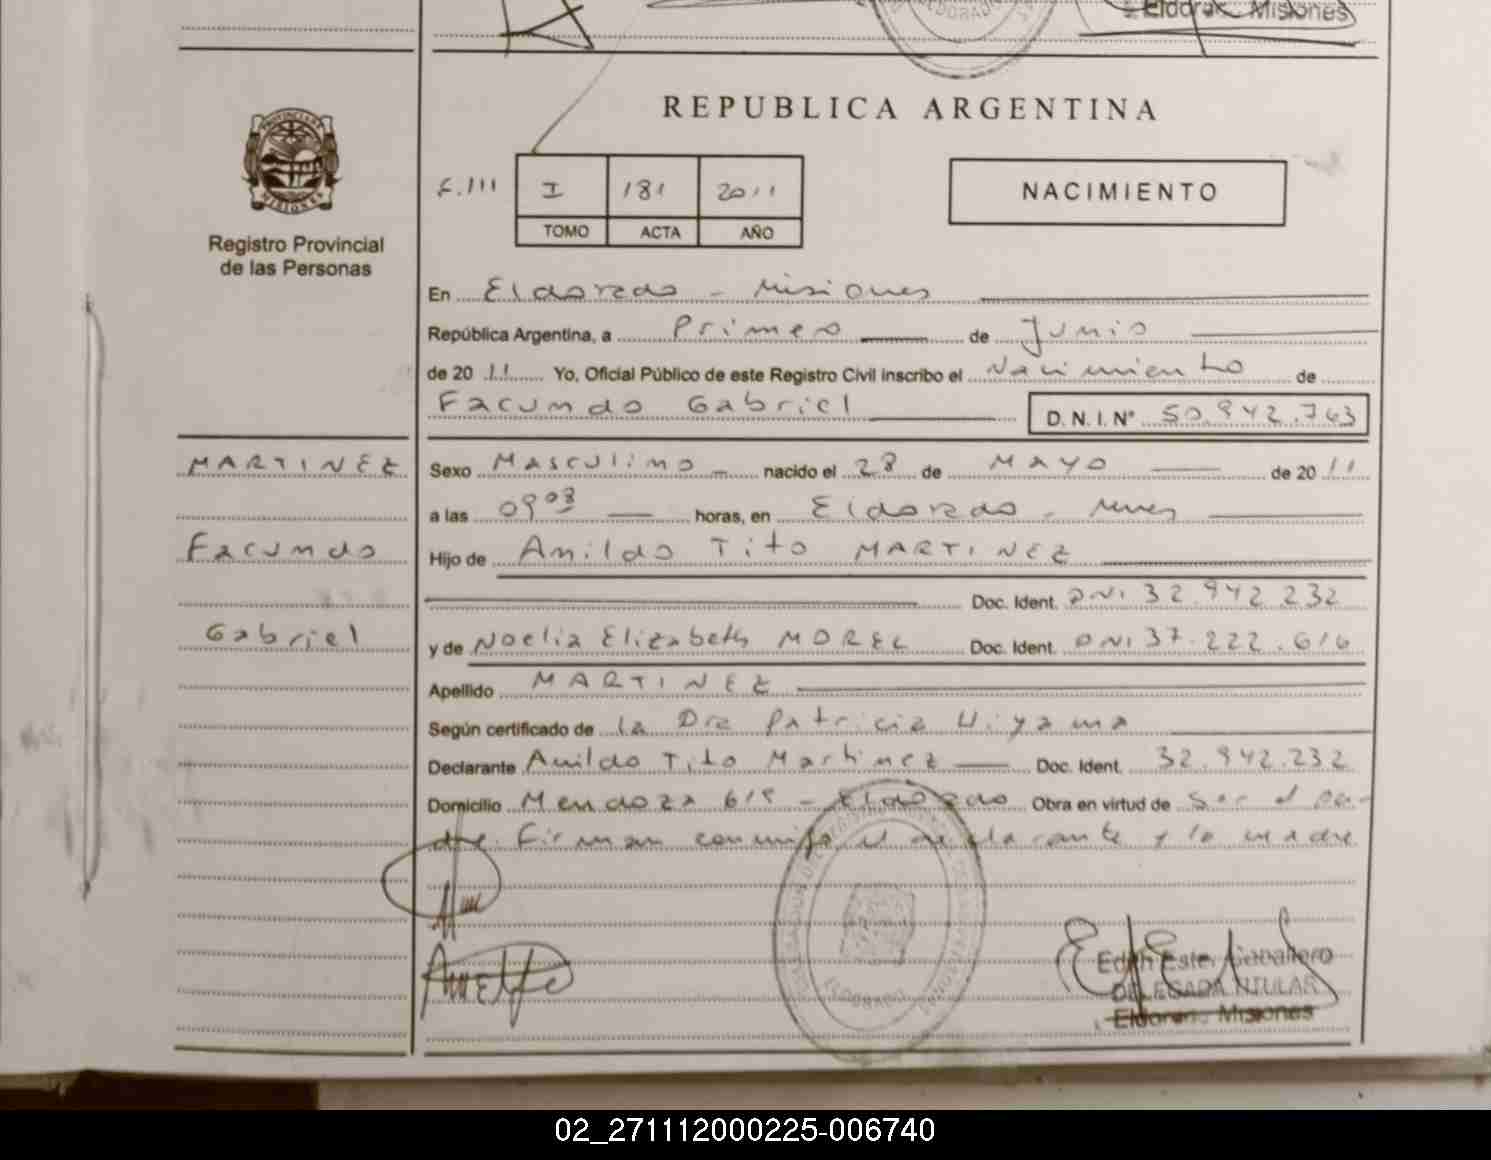 Eldorado Misiones
REPUBLICA ARGENTINA
PROVINCIA DE MISIONES
Registro Provincial
de las Personas
F.111 I 181 2011
TOMO ACTA AÑO
NACIMIENTO
En Eldorado - Misiones
República Argentina, a Primero de Junio
de 20 11 Yo, Oficial Público de este Registro Civil inscribo el Nacimiento de
Facundo Gabriel D. N. I. Nº 50.942.763
MARTINEZ
Facundo
Gabriel
Sexo Masculino nacido el 28 de MAYO de 20 11
a las 09 03 horas, en Eldorado - Mnes
Hijo de Anildo Tito MARTINEZ
Doc. Ident. DNI 32.942.232
y de Noelia Elizabeth MOREL Doc. Ident. DNI 37.222.616
Apellido MARTINEZ
Según certificado de la Dra Patricia Uiyama
Declarante Anildo Tito Martinez Doc. Ident. 32.942.232
Domicilio Mendoza 619 - Eldorado Obra en virtud de Ser el pa-
dre. Firman conmigo el declarante y la madre
ELDORADO
Edith Ester Caballero
DELEGADA TITULAR
Eldorado Misiones
02_271112000225-006740